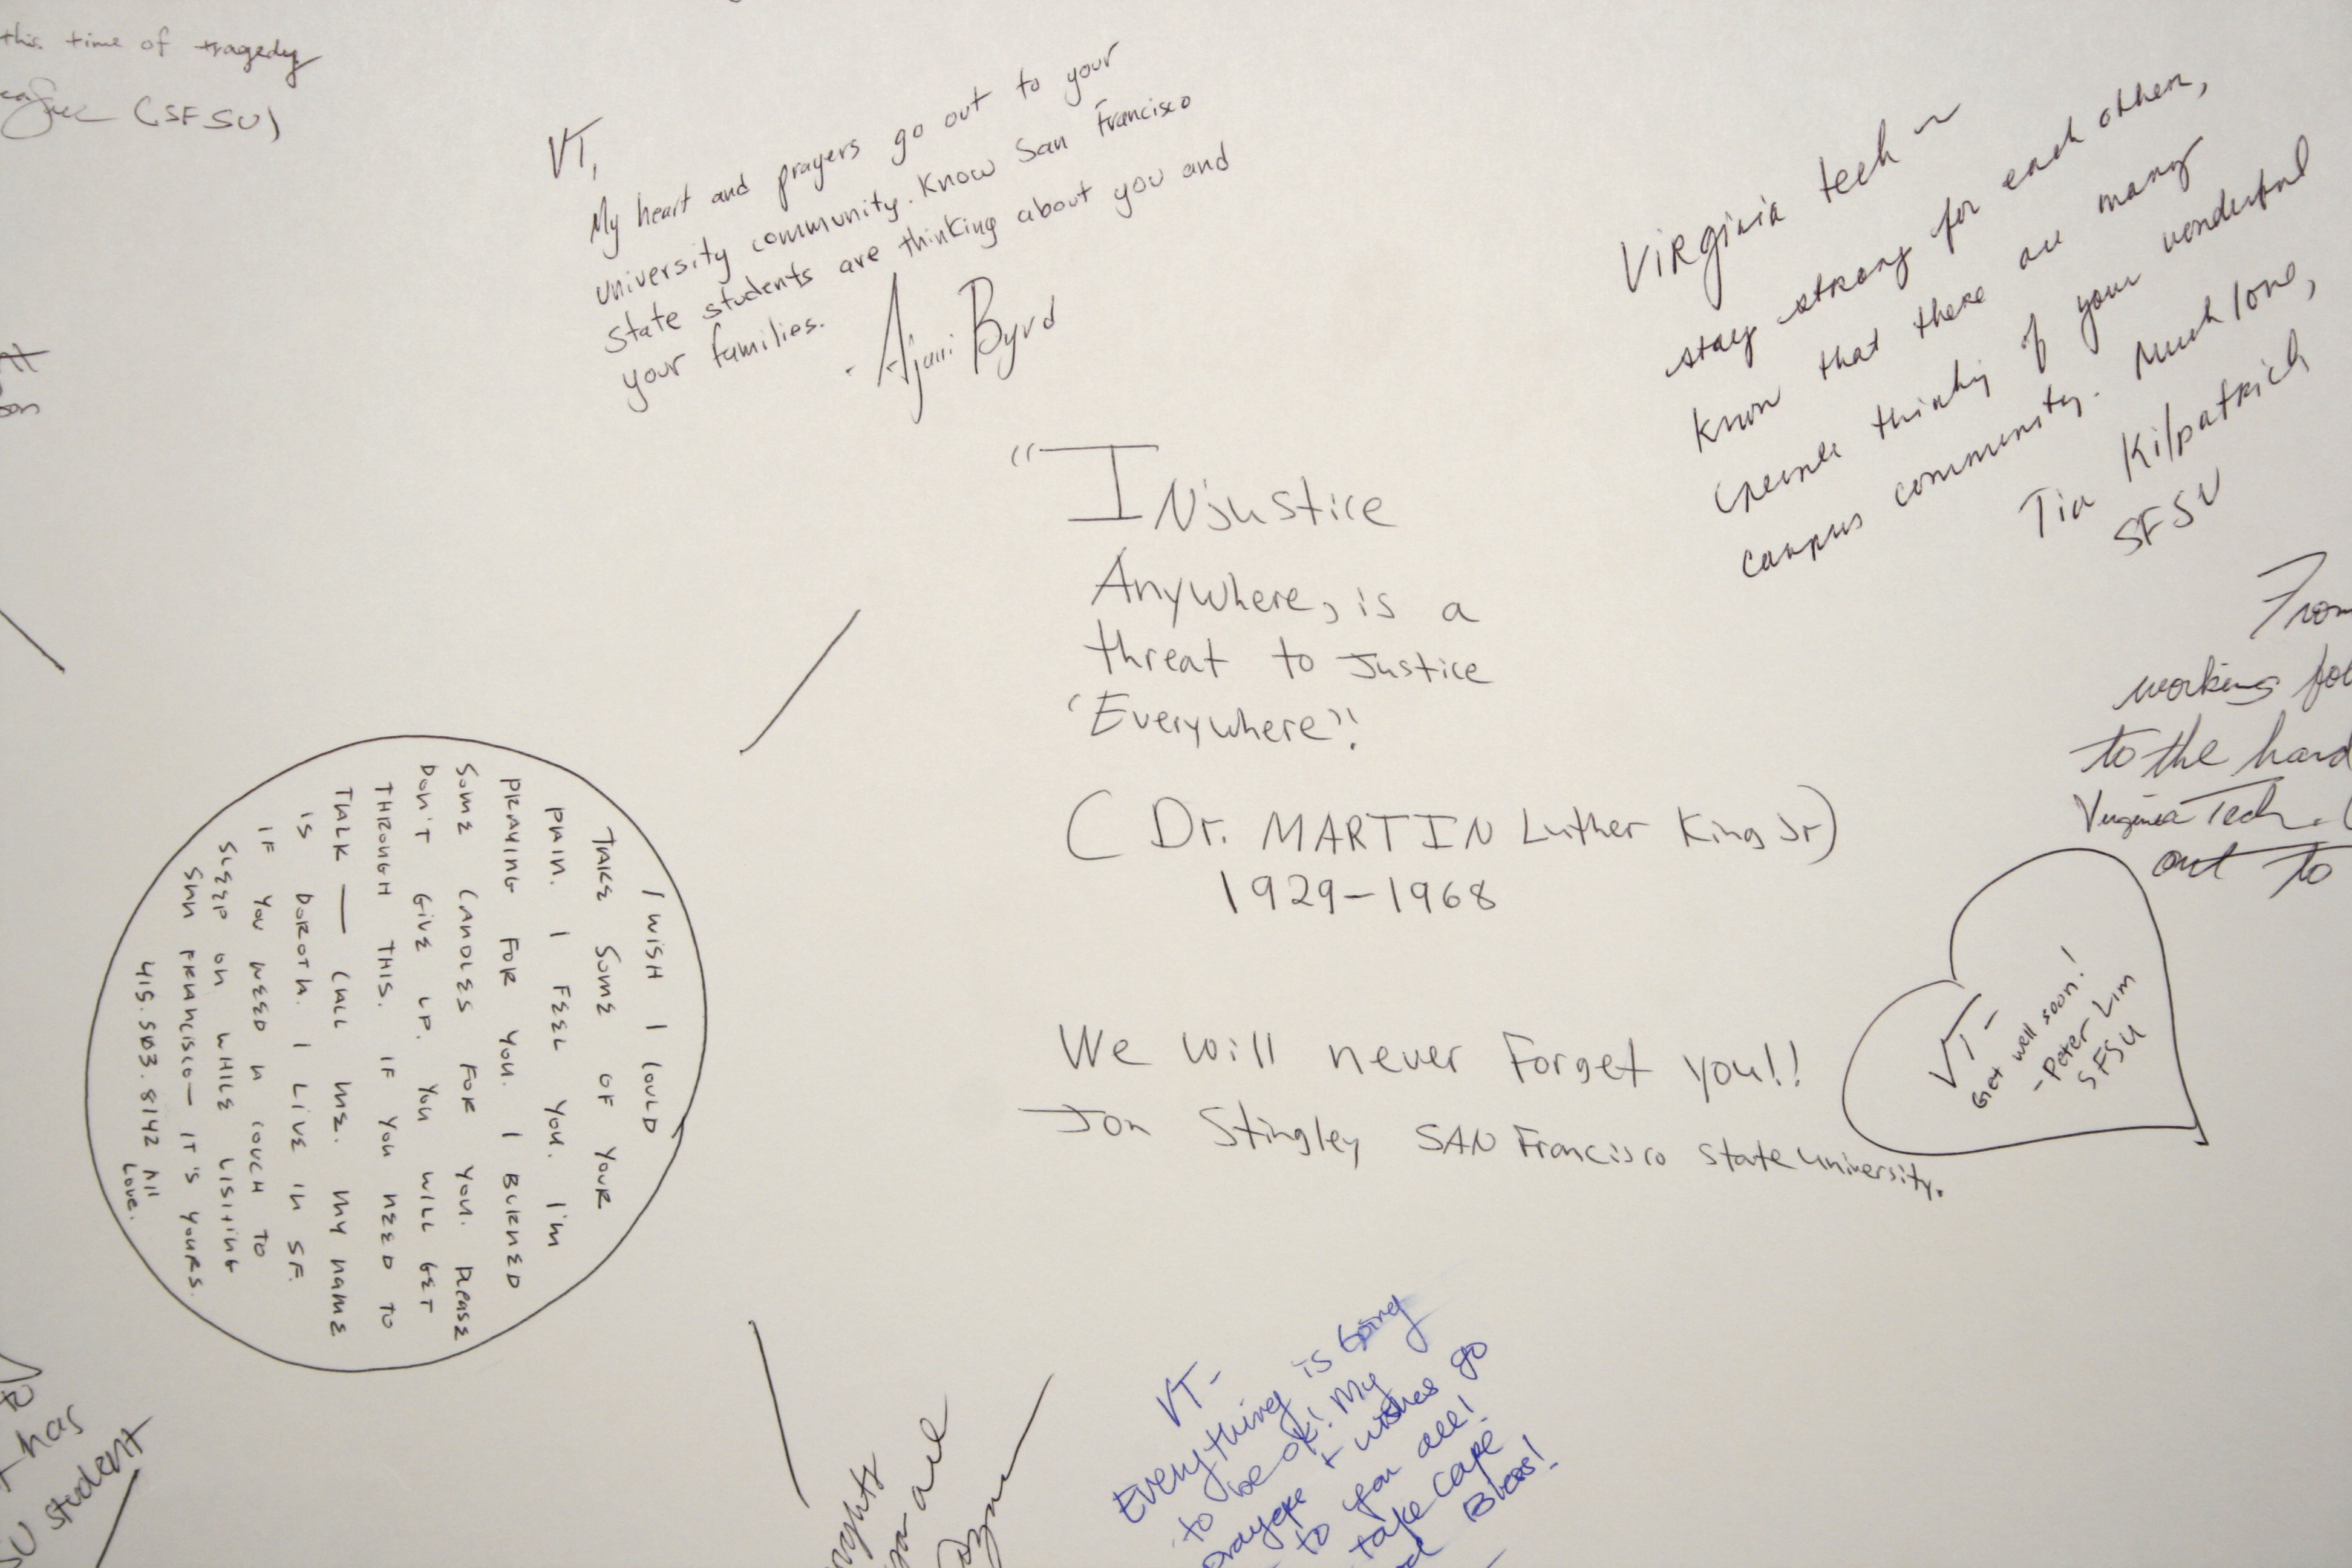 this time of tragedy
(SFSU)
VT,
My heart and prayers go out to your
university community. Know San Francisco
State students are thinking about you and
your families.
- Ajani Byrd
Virginia tech ~
stay strong for each other,
know that there are many
people thinking of your wonderful
campus community. Much love,
Tia Kilpatrick
SFSU
"INjustice
Anywhere, is a
threat to Justice
'Everywhere"!
(Dr. MARTIN Luther King Jr)
1929-1968
We will never Forget you!!
Jon Stingley SAN Francisco State University.
From
working
to the hard
Virginia Tech.
out to
VT-
Get well soon!
-Peter Lim
SFSU
I WISH I COULD
TAKE SOME OF YOUR
PAIN. I FEEL YOU. I'M
PRAYING FOR YOU. I BURNED
SOME CANDLES FOR YOU. PLEASE
DON'T GIVE UP. YOU WILL GET
THROUGH THIS. IF YOU NEED TO
TALK — CALL ME. MY NAME
IS DOROTH. I LIVE IN SF.
IF YOU NEED A COUCH TO
SLEEP ON WHILE VISITING
SAN FRANCISCO — IT'S YOURS.
415.503.8142 All
Love.
VT-
Everything is Going
to be ok! My
prayers + wishes go
to you all!
take care
Bless!
to
has
student
are